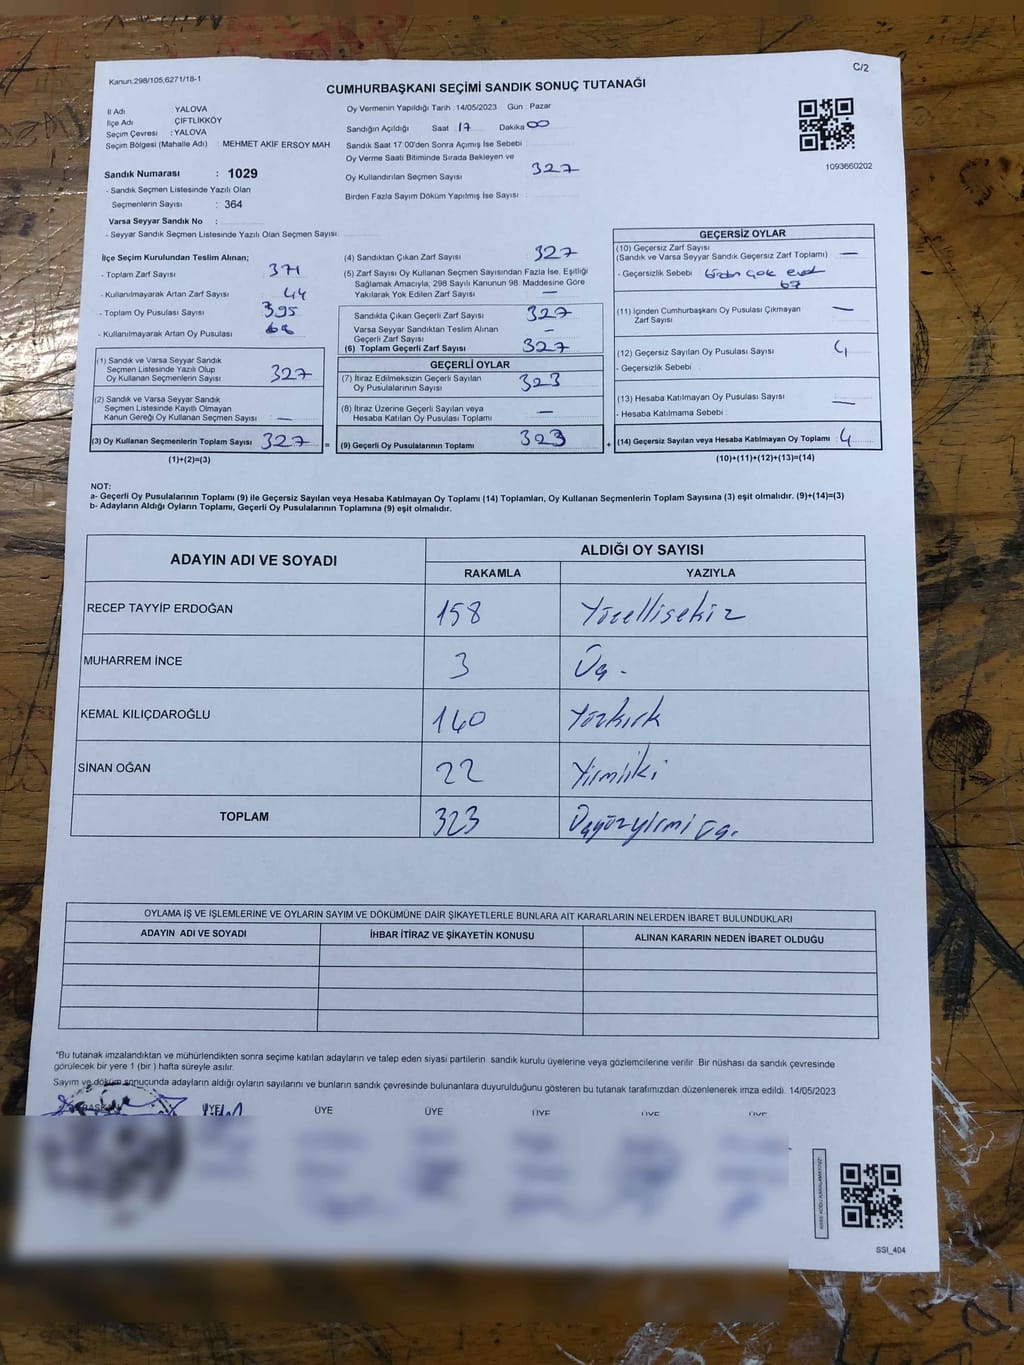 Kanun:298/105,6271/18-1
C/2
CUMHURBAŞKANI SEÇİMİ SANDIK SONUÇ TUTANAĞI
İl Adı YALOVA
İlçe Adı ÇİFTLİKKÖY
Seçim Çevresi : YALOVA
Seçim Bölgesi (Mahalle Adı) : MEHMET AKİF ERSOY MAH
Sandık Numarası : 1029
- Sandık Seçmen Listesinde Yazılı Olan
Seçmenlerin Sayısı : 364
Varsa Seyyar Sandık No :
- Seyyar Sandık Seçmen Listesinde Yazılı Olan Seçmen Sayısı:
Oy Vermenin Yapıldığı Tarih : 14/05/2023 Gün : Pazar
Sandığın Açıldığı Saat 17 Dakika 00
Sandık Saat 17:00'den Sonra Açımış İse Sebebi :
Oy Verme Saati Bitiminde Sırada Bekleyen ve
Oy Kullandırılan Seçmen Sayısı : 327
Birden Fazla Sayım Döküm Yapılmış İse Sayısı :
1093660202
İlçe Seçim Kurulundan Teslim Alınan;
- Toplam Zarf Sayısı : 371
- Kullanılmayarak Artan Zarf Sayısı : 44
- Toplam Oy Pusulası Sayısı : 395
- Kullanılmayarak Artan Oy Pusulası : 68
(1) Sandık ve Varsa Seyyar Sandık
Seçmen Listesinde Yazılı Olup
Oy Kullanan Seçmenlerin Sayısı : 327
(2) Sandık ve Varsa Seyyar Sandık
Seçmen Listesinde Kayıtlı Olmayan
Kanun Gereği Oy Kullanan Seçmen Sayısı : —
(3) Oy Kullanan Seçmenlerin Toplam Sayısı : 327
(1)+(2)=(3)
(4) Sandıktan Çıkan Zarf Sayısı : 327
(5) Zarf Sayısı Oy Kullanan Seçmen Sayısından Fazla İse, Eşitliği
Sağlamak Amacıyla; 298 Sayılı Kanunun 98. Maddesine Göre
Yakılarak Yok Edilen Zarf Sayısı : —
Sandıkta Çıkan Geçerli Zarf Sayısı : 327
Varsa Seyyar Sandıktan Teslim Alınan
Geçerli Zarf Sayısı : —
(6) Toplam Geçerli Zarf Sayısı : 327
GEÇERLİ OYLAR
(7) İtiraz Edilmeksizin Geçerli Sayılan
Oy Pusulalarının Sayısı : 323
(8) İtiraz Üzerine Geçerli Sayılan veya
Hesaba Katılan Oy Pusulası Toplamı : —
= (9) Geçerli Oy Pusulalarının Toplamı : 323
GEÇERSİZ OYLAR
(10) Geçersiz Zarf Sayısı
(Sandık ve Varsa Seyyar Sandık Geçersiz Zarf Toplamı) : —
- Geçersizlik Sebebi :
(11) İçinden Cumhurbaşkanı Oy Pusulası Çıkmayan
Zarf Sayısı : —
(12) Geçersiz Sayılan Oy Pusulası Sayısı : 4
- Geçersizlik Sebebi :
(13) Hesaba Katılmayan Oy Pusulası Sayısı : —
- Hesaba Katılmama Sebebi :
+ (14) Geçersiz Sayılan veya Hesaba Katılmayan Oy Toplamı : 4
(10)+(11)+(12)+(13)=(14)
NOT:
a- Geçerli Oy Pusulalarının Toplamı (9) ile Geçersiz Sayılan veya Hesaba Katılmayan Oy Toplamı (14) Toplamları, Oy Kullanan Seçmenlerin Toplam Sayısına (3) eşit olmalıdır. (9)+(14)=(3)
b- Adayların Aldığı Oyların Toplamı, Geçerli Oy Pusulalarının Toplamına (9) eşit olmalıdır.
ADAYIN ADI VE SOYADI
ALDIĞI OY SAYISI
RAKAMLA YAZIYLA
RECEP TAYYİP ERDOĞAN 158 Yüzellisekiz
MUHARREM İNCE 3 Üç.
KEMAL KILIÇDAROĞLU 140 Yüzkırk
SİNAN OĞAN 22 Yirmiiki
TOPLAM 323 Üçyüzyirmi üç.
OYLAMA İŞ VE İŞLEMLERİNE VE OYLARIN SAYIM VE DÖKÜMÜNE DAİR ŞİKAYETLERLE BUNLARA AİT KARARLARIN NELERDEN İBARET BULUNDUKLARI
ADAYIN ADI VE SOYADI İHBAR İTİRAZ VE ŞİKAYETİN KONUSU ALINAN KARARIN NEDEN İBARET OLDUĞU
*Bu tutanak imzalandıktan ve mühürlendikten sonra seçime katılan adayların ve talep eden siyasi partilerin sandık kurulu üyelerine veya gözlemcilerine verilir. Bir nüshası da sandık çevresinde
görülecek bir yere 1 (bir ) hafta süreyle asılır.
Sayım ve döküm sonucunda adayların aldığı oyların sayılarını ve bunların sandık çevresinde bulunanlara duyurulduğunu gösteren bu tutanak tarafımızdan düzenlenerek imza edildi. 14/05/2023
BAŞKAN ÜYE ÜYE ÜYE ÜYE ÜYE ÜYE
SSI_404